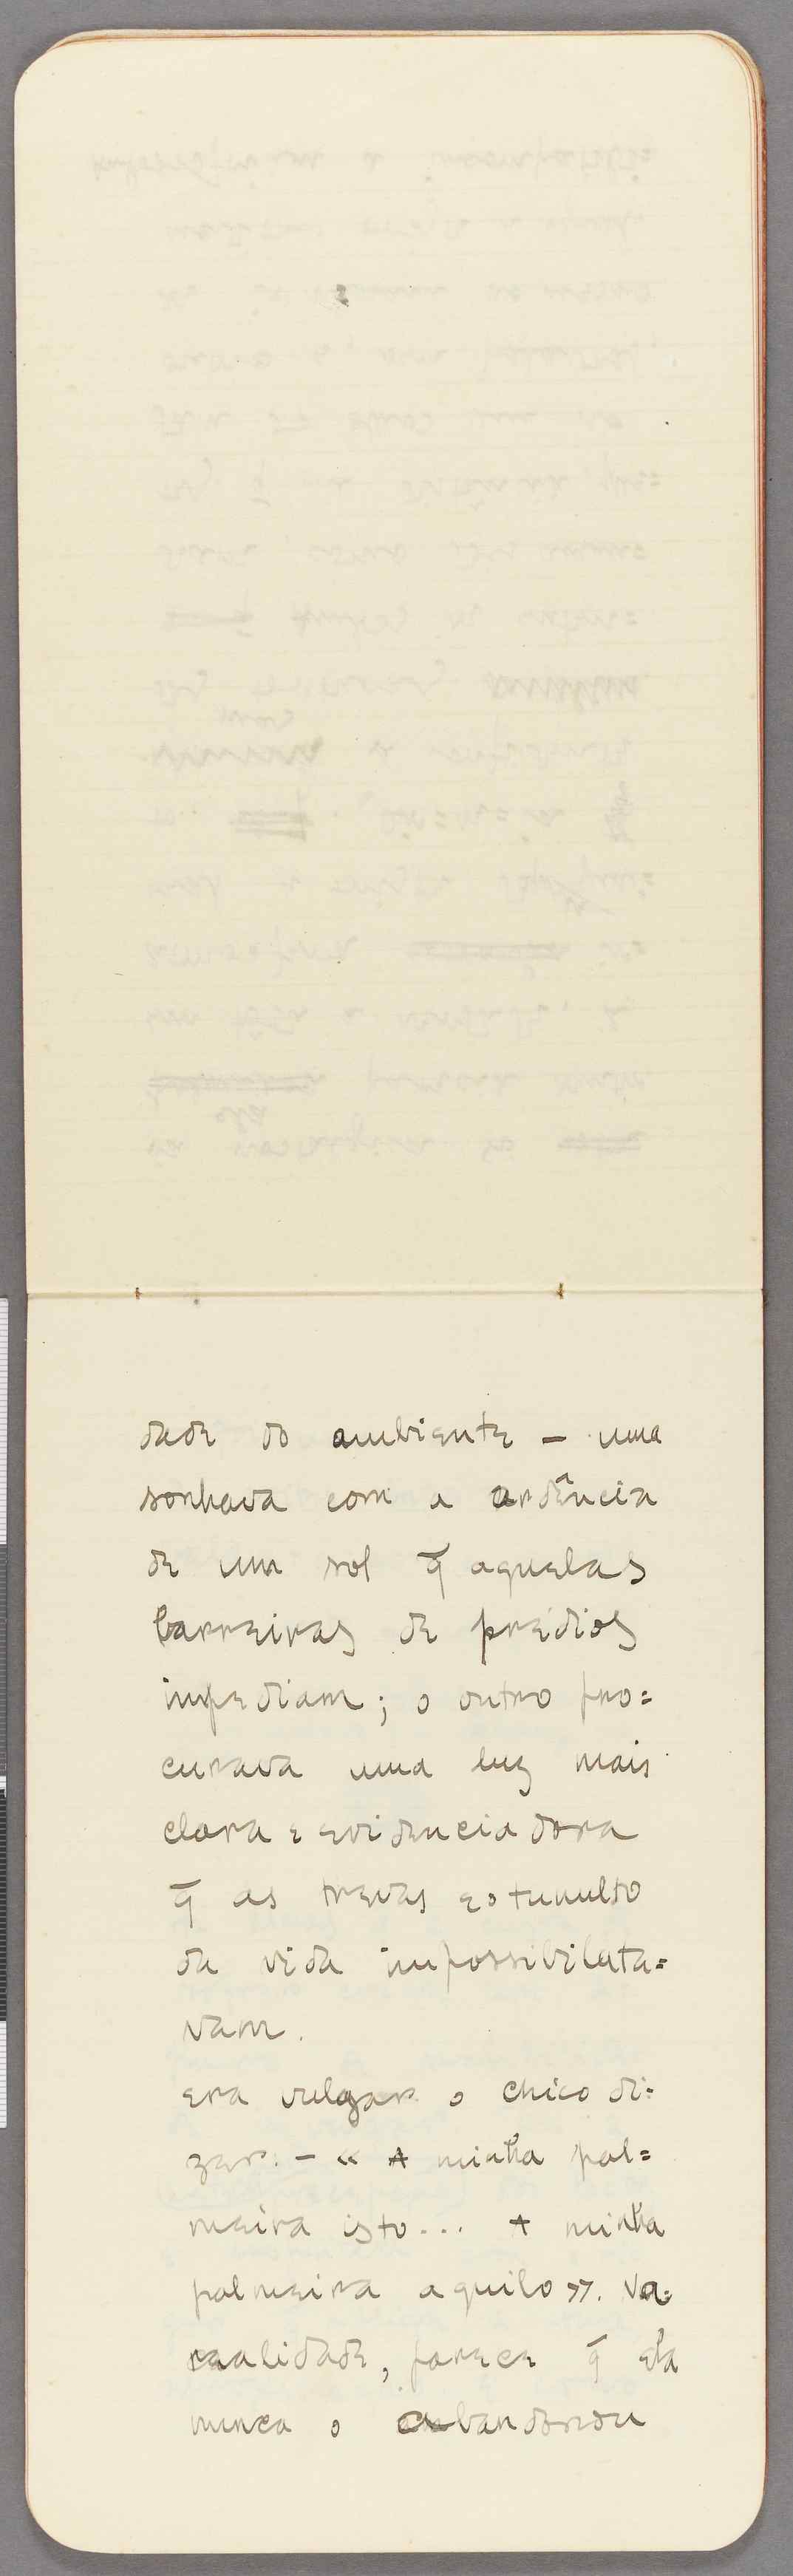 dade do ambiente – uma
sonhava com a ardência
de um sol q̃ aquelas
barreiras de prédios
impediam; o outro pro=
curava uma luz mais
clara e evidenciadora
q̃ as trevas e o tumulto
da vida impossibilita=
vam.
era vulgar o chico di=
zer: – « A minha pal=
meira isto... A minha
palmeira aquilo ». Na
realidade, parece q̃ ela
nunca o abandonou